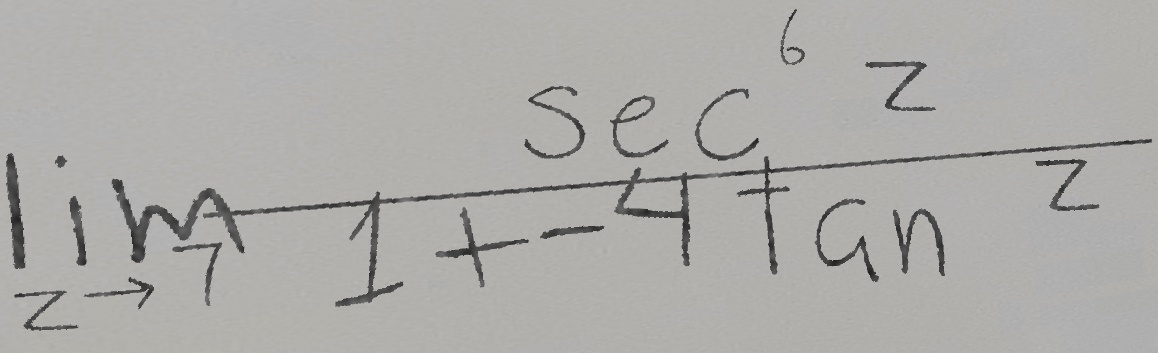 \lim_{z \to 7} \frac{\sec^6 z}{1 + -4 \tan z}